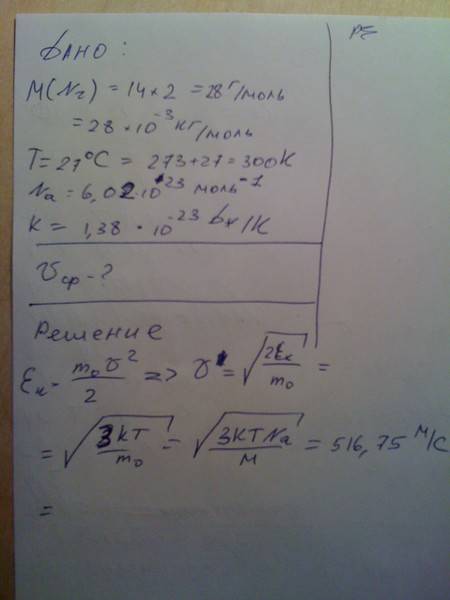 Дано:
M(N₂) = 14×2 = 28 г/моль
= 28 × 10⁻³ кг/моль
T = 27°C = 273+27 = 300K
Na = 6,02·10²³ моль⁻¹
K = 1,38 · 10⁻²³ Дж/K
υср - ?
Решение
Eк = m₀υ²/2 => υ = √(2Eк/m₀) =
= √(3KT/m₀) = √(3KTNa/M) = 516,75 м/с
=